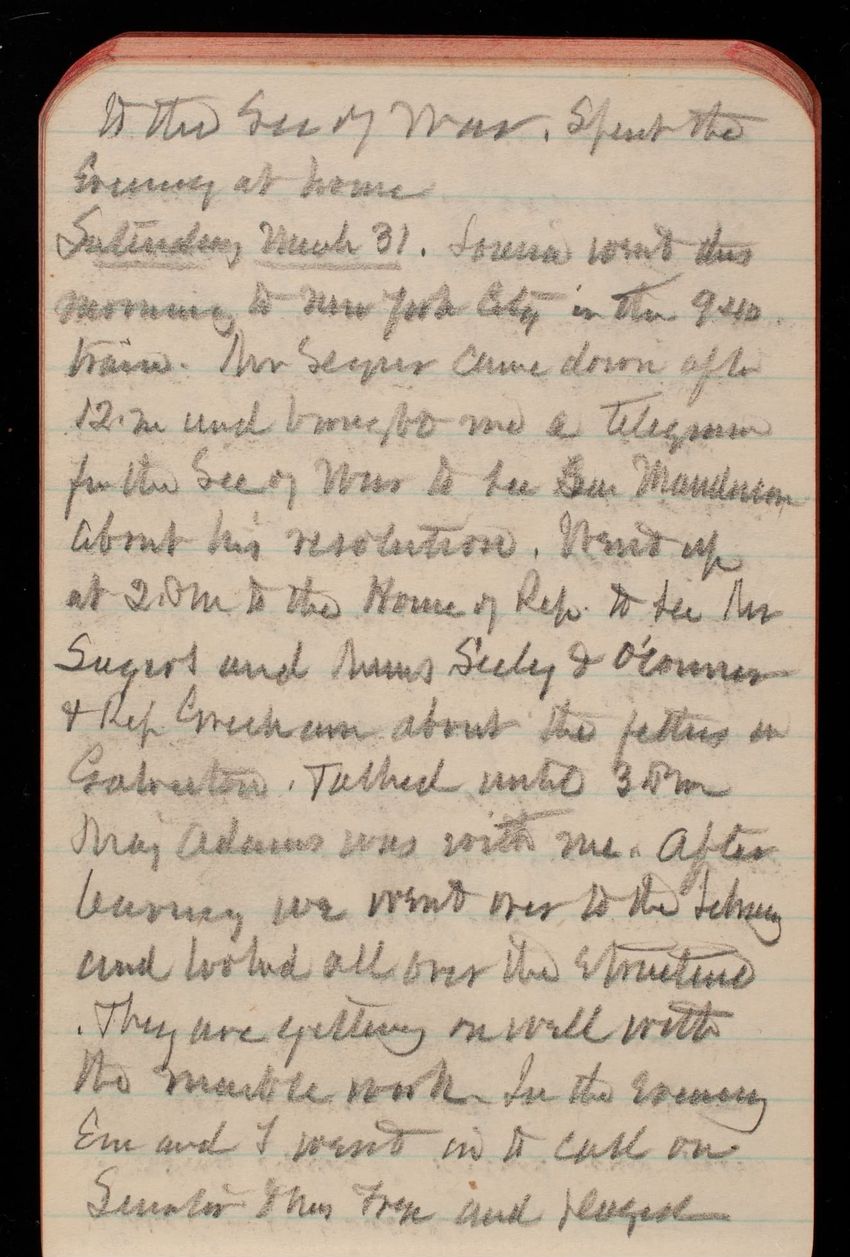 to the Sec of War. Spent the
Evening at home
Saturday March 31. Louisa went this
morning to New York City in the 9.40
train. Mr came down after
12.m and brought me a telegram
fr the Sec of War to see Gen Manderson
about his resolution. Went up
at 2.Pm to the House of Rep. to see Mr
Sayers and Messrs Seeley & O'Connor
& Rep Gresham about the jetties in
Galveston. Talked until 3 Pm
Maj Adams was with me. After
leaving we went over to the Library
and looked all over the Structure
. They are getting on well with
the marble work. In the Evening
Em and I went in to call on
Senator & Mrs Frye and played